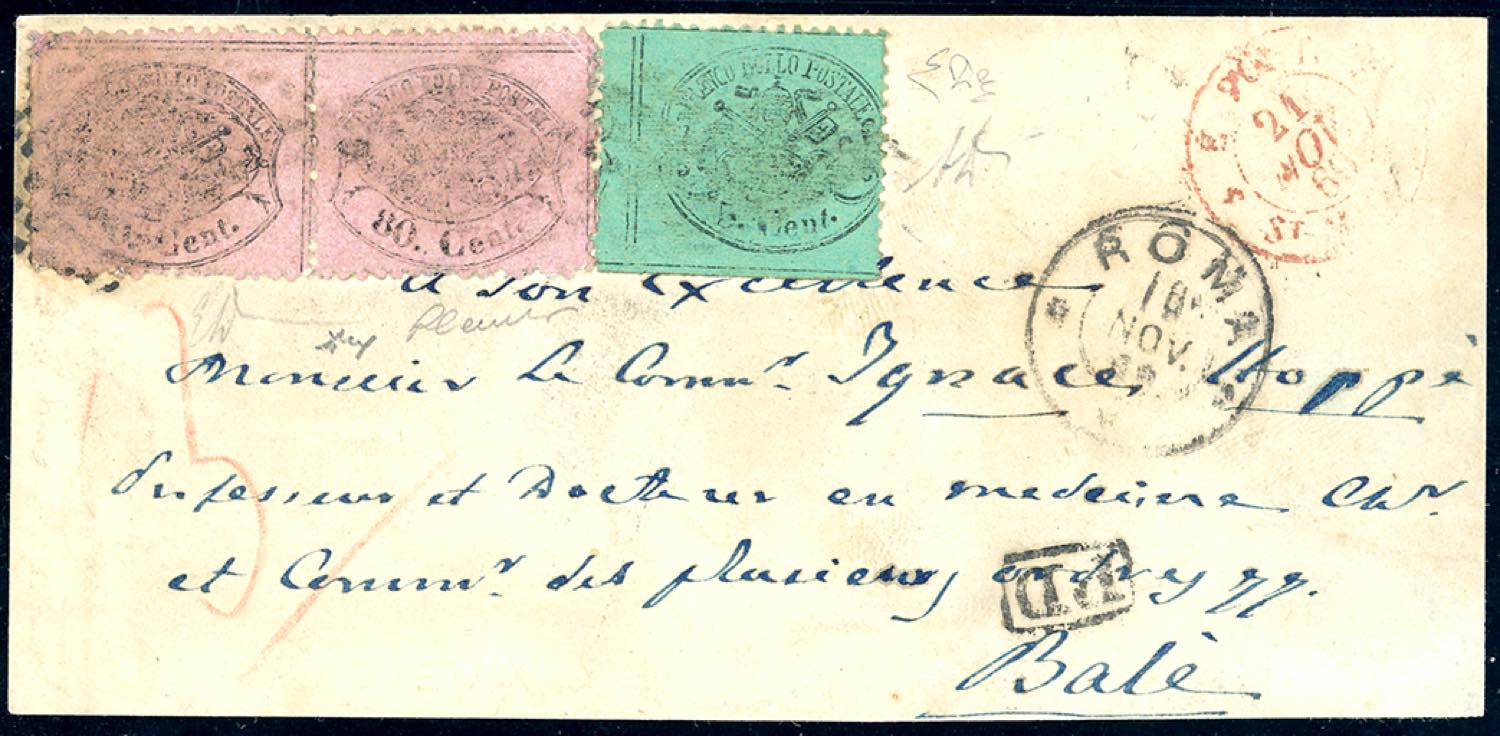 FRANCO BOLLO POSTALE
Cent.
FRANCO BOLLO POSTALE
80. Cent.
FRANCO BOLLO POSTALE
Cent.
21
ROMA
18
NOV.
A son Excellence
Monsieur Le Comm.r Ignace Hoppe
Professeur et Docteur en medecine Chr.
et Comm.r des plusieurs ordres gg.
PD
Balè